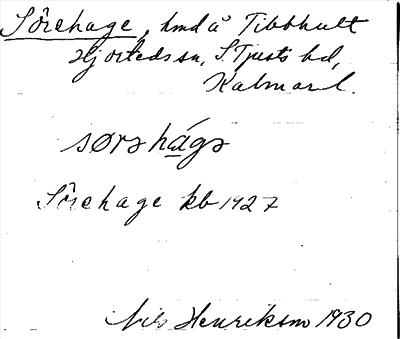 Sörehage, hmd å Tibbhult
Hjorteds sn, S. Tjusts hd,
Kalmar l.
sørshágs
Sörehage kb 1927
Nils Henrikson 1930